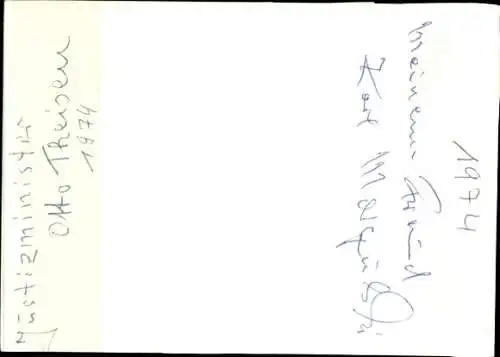 Justizminister
Otto Theisen
1974
Meinem Freund
Karl
1974